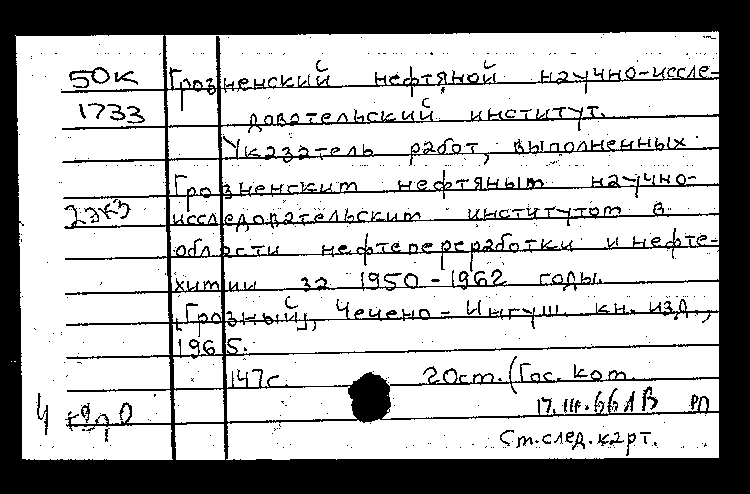 50к Грозненский нефтяной научно-иссле-
1733 довательский институт.
Указатель работ, выполненных
Грозненским нефтяным научно-
2экз исследовательским институтом в
области нефтепереработки и нефте-
химии за 1950-1962 годы.
[Грозный], Чечено-Ингуш. кн. изд.,
1965.
147с. 20см. (Гос. ком.
17.III.66 ЛВ РП
См.след.карт.